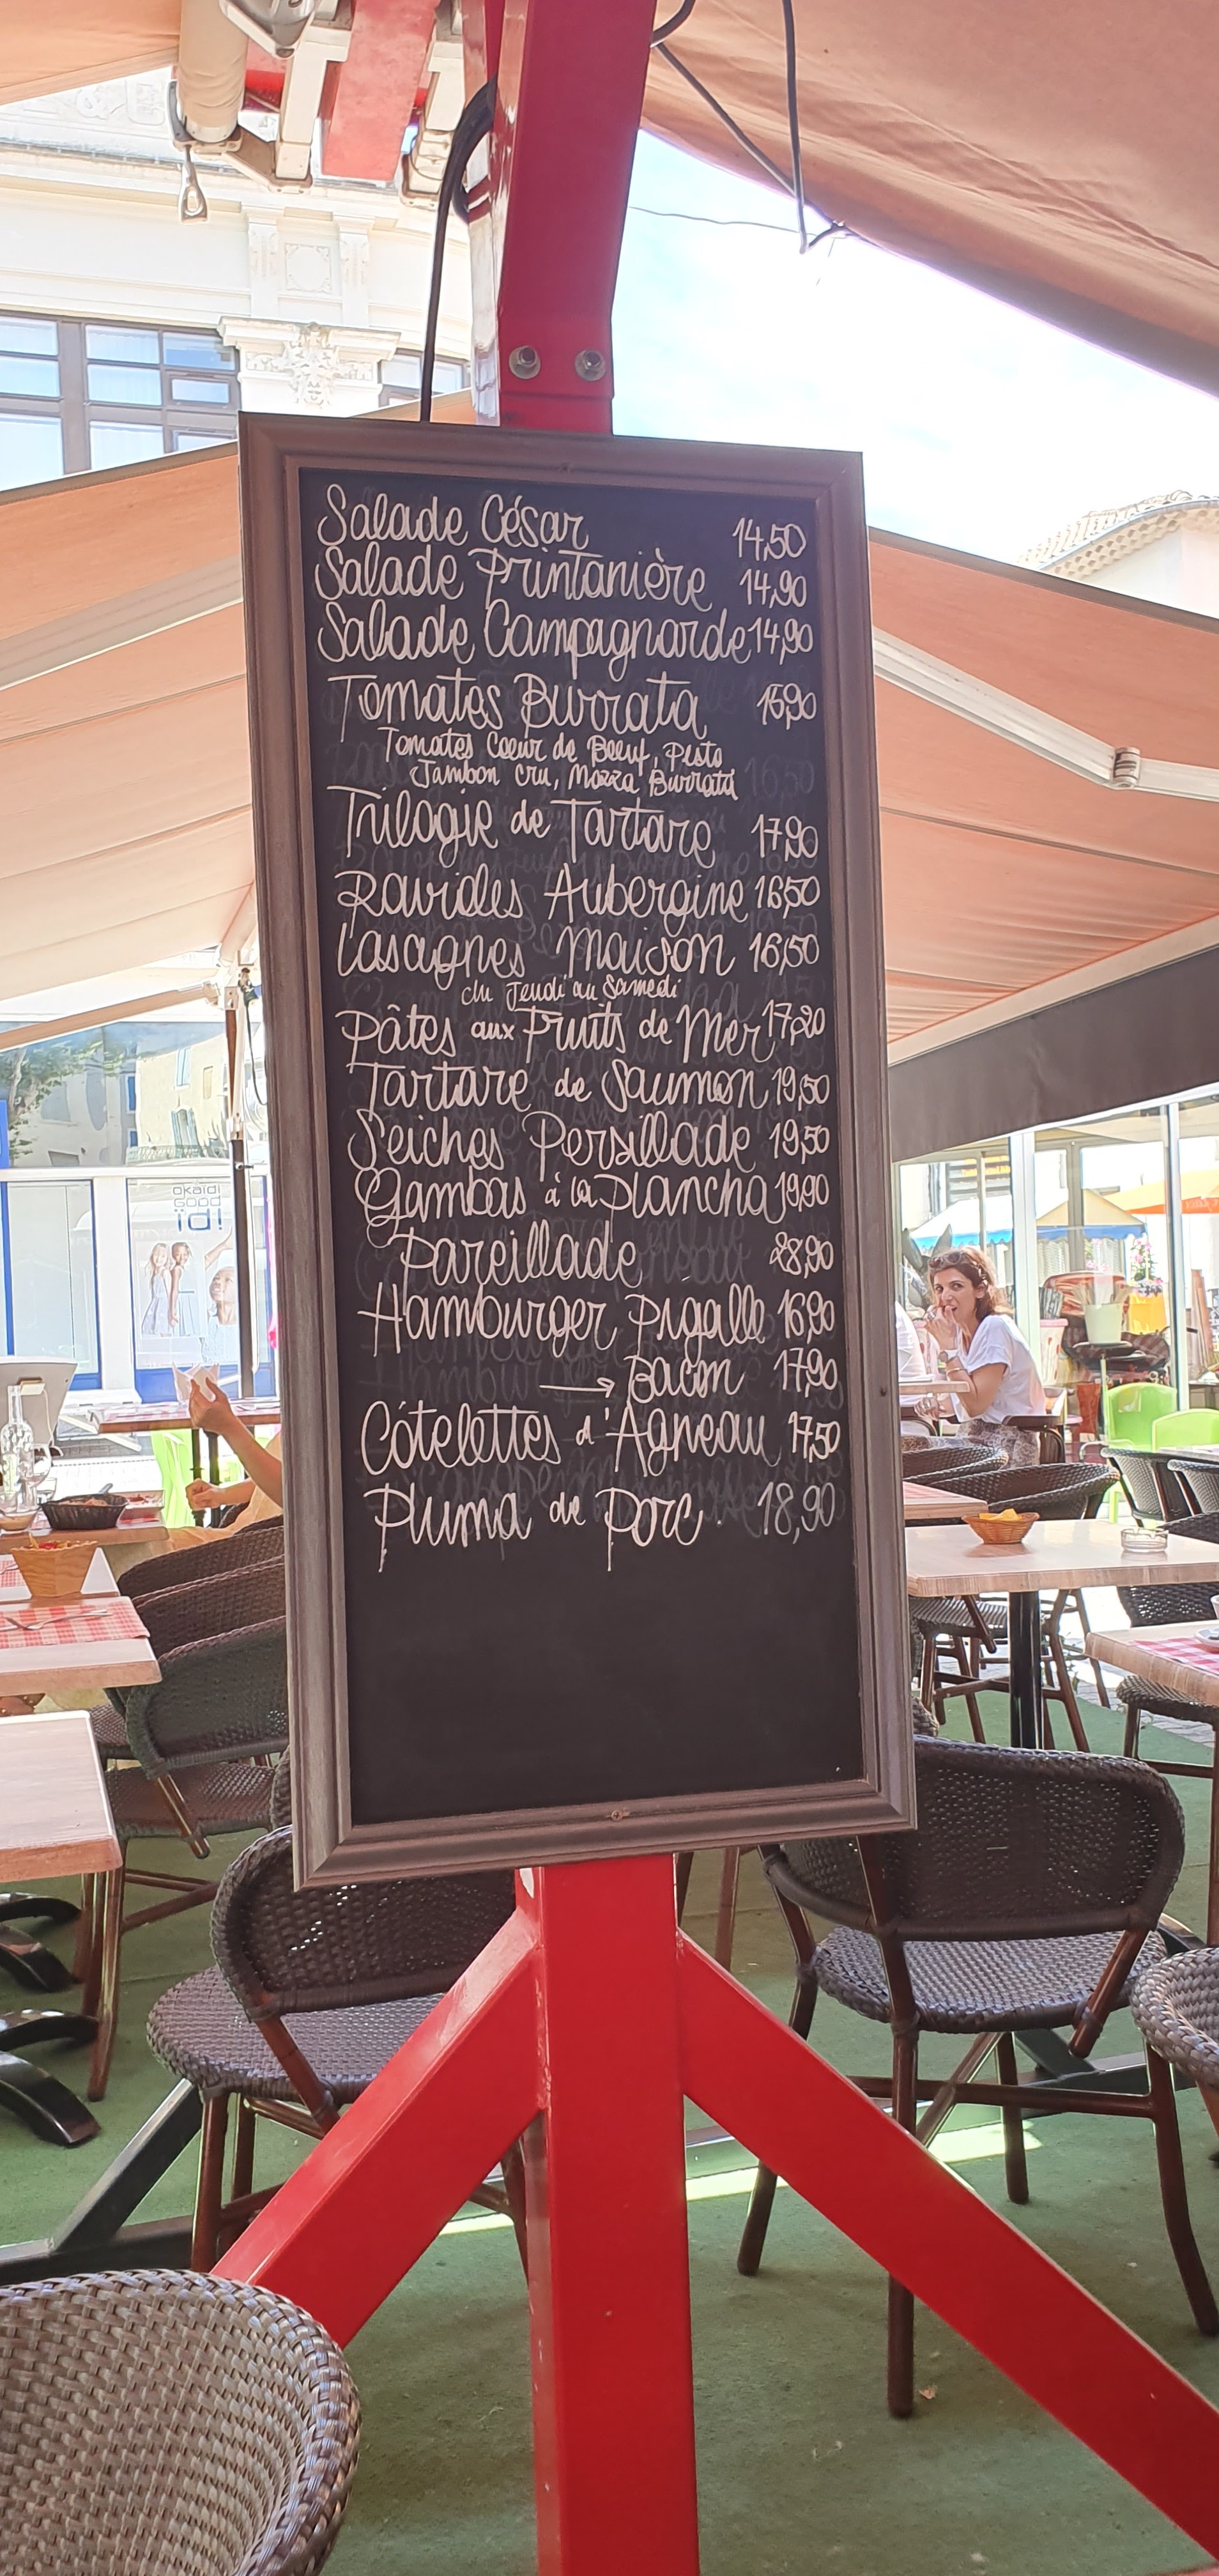 Salade César 14,50
Salade Printanière 14,90
Salade Campagnarde 14,90
Tomates Burrata 15,90
Tomates Coeur de Boeuf, Pesto
Jambon cru, Mozza Burrata
Trilogie de Tartare 17,90
Ravioles Aubergine 16,50
Lasagnes Maison 16,50
du Jeudi au Samedi
Pâtes aux Fruits de Mer 17,20
Tartare de Saumon 19,50
Seiches Persillade 19,50
Gambas à la Plancha 19,90
Pareillade 28,90
Hamburger Pigalle 16,90
→ Bacon 17,90
Côtelettes d'Agneau 17,50
Pluma de Porc 18,90
okaïdi